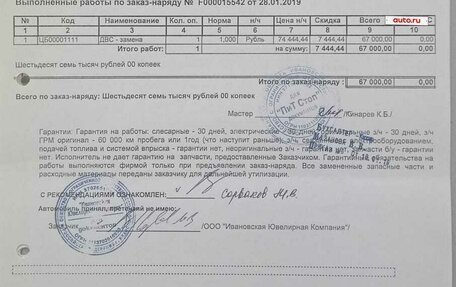 Выполненные работы по заказ-наряду № F000015542 от 28.01.2019
auto.ru
№ Код Наименование Кол. оп. Норма н/ч Цена н/ч Скидка Всего С
1 2 3 4 5 6 7 8 9 10
1 ЦБ00001111 ДВС - замена 1 1,000 Рубль 74 444,44 7 444,44 67 000,00 0,00
Итого работ: 1 на сумму: 7 444,44 67 000,00 0,00
Шестьдесят семь тысяч рублей 00 копеек
Итого по заказ-наряду: 67 000,00 0,00
Всего по заказ-наряду: Шестьдесят семь тысяч рублей 00 копеек
для
"ПиТ Стоп"
Мастер /Кинарев К.Б./
Гарантии: Гарантия на работы: слесарные - 30 дней, электрические - 30 дней, - 30 дней, з/ч
ГРМ оригинал - 60 000 км пробега или 1год (что наступит раньше), с/р с
подачей топлива и системой впрыска - гарантии нет, неоригинальные з/ч - гарантии нет, запчасти б/у - гарантии
нет. Исполнитель не дает гарантию на запчасти, предоставленные Заказчиком. Гарантийные обязательства
на работы выполняются фирмой только при предъявлении заказ-наряда. Все замененные запасные части и
расходные материалы переданы заказчику для дальнейшей утилизации.
Бухгалтер
С РЕКОМЕНДАЦИЯМИ ОЗНАКОМЛЕН: М.В.
Автомобиль принял, претензий не имею:
/ООО "Ивановская Ювелирная Компания"/